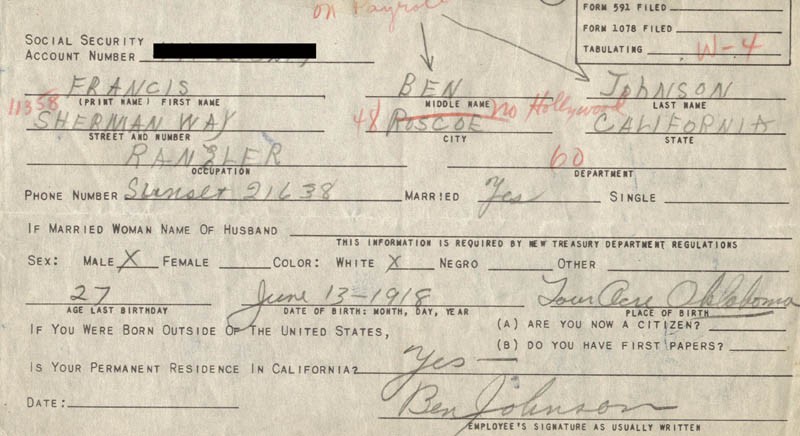 on Payroll
FORM 591 FILED
FORM 1078 FILED
TABULATING W-4
SOCIAL SECURITY
ACCOUNT NUMBER
FRANCIS BEN JOHNSON
(PRINT NAME) FIRST NAME MIDDLE NAME LAST NAME
11358 48 no Hollywood
SHERMAN WAY ROSCOE CALIFORNIA
STREET AND NUMBER CITY STATE
RANGLER 60
OCCUPATION DEPARTMENT
PHONE NUMBER Sunset 21638 MARRIED Yes SINGLE
IF MARRIED WOMAN NAME OF HUSBAND
THIS INFORMATION IS REQUIRED BY NEW TREASURY DEPARTMENT REGULATIONS
SEX: MALE X FEMALE COLOR: WHITE X NEGRO OTHER
27 June 13-1918 Four Acre Oklahoma
AGE LAST BIRTHDAY DATE OF BIRTH: MONTH, DAY, YEAR PLACE OF BIRTH
IF YOU WERE BORN OUTSIDE OF THE UNITED STATES, (A) ARE YOU NOW A CITIZEN?
(B) DO YOU HAVE FIRST PAPERS?
IS YOUR PERMANENT RESIDENCE IN CALIFORNIA? Yes —
DATE: Ben Johnson
EMPLOYEE'S SIGNATURE AS USUALLY WRITTEN